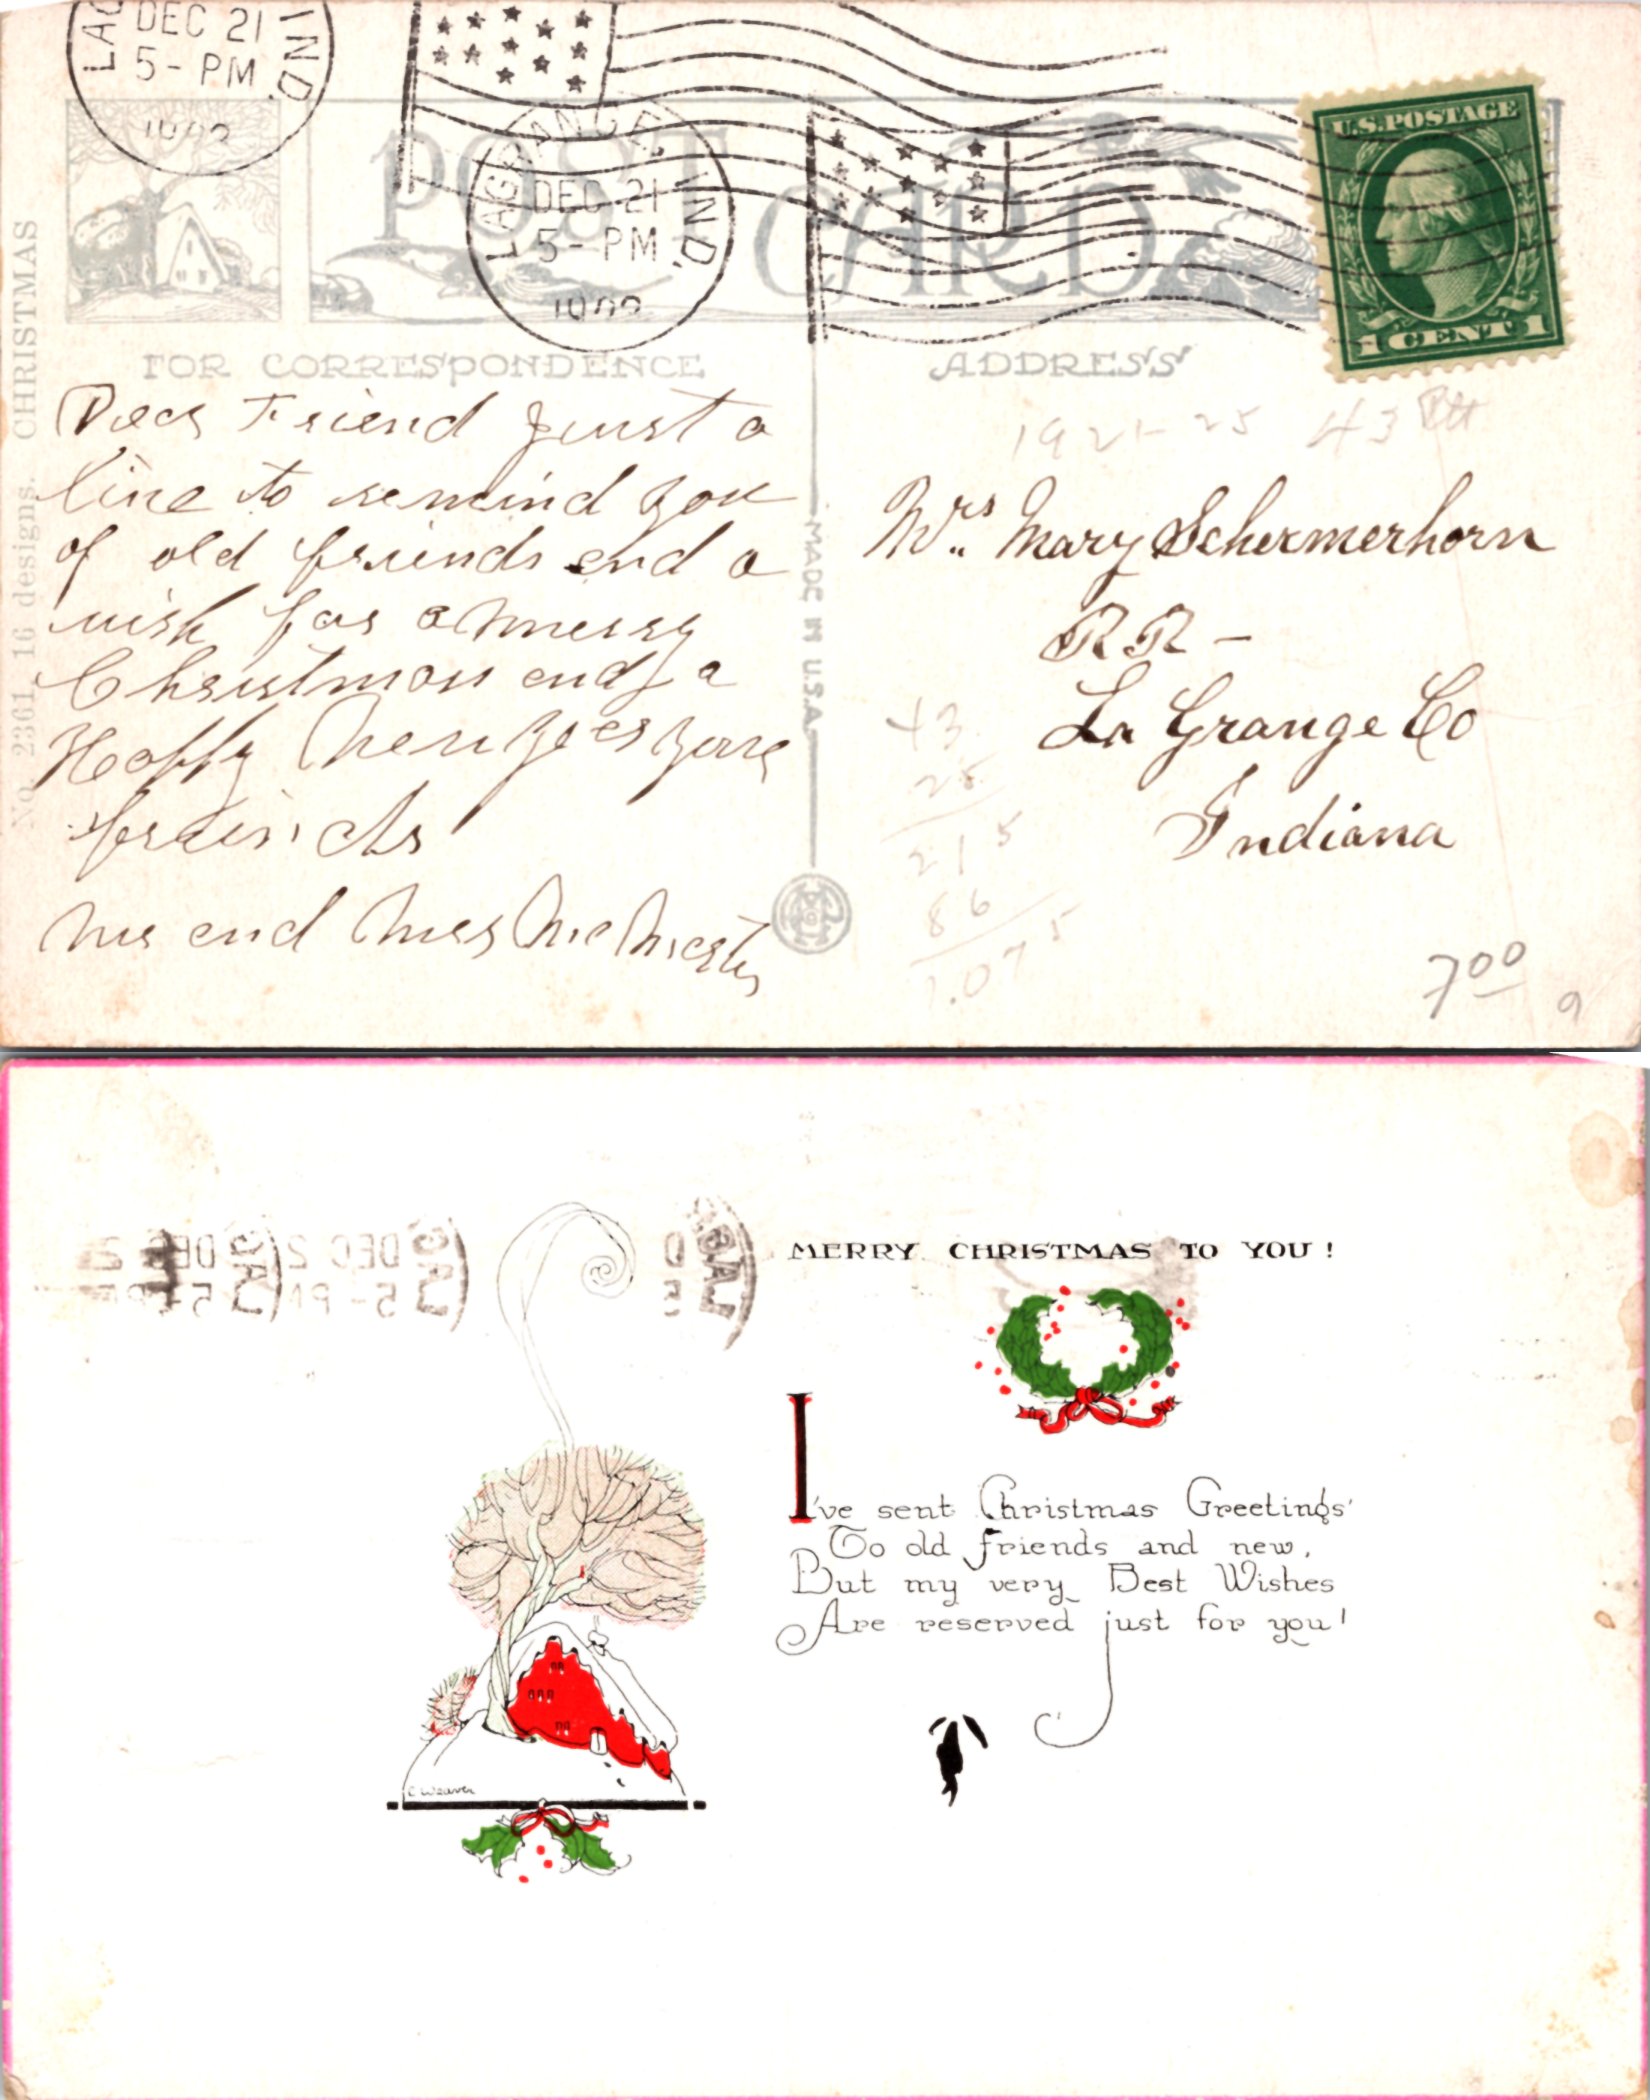 DEC 21
5- PM
IND.
LAGRANGE, IND.
DEC 21
5- PM
U.S. POSTAGE
1 CENT 1
POST CARD
No. 2361, 16 designs. CHRISTMAS
FOR CORRESPONDENCE
ADDRESS
Dear Friend Just a
line to remind you
of old friends and a
wish for a merry
Christmas and a
Happy New Year your
friends
Mr and Mrs
MADE IN U.S.A.
1921-25 43
Mrs Mary Schermerhorn
RR -
La Grange Co
Indiana
43
25
215
86
1.075
7 00
9
MERRY CHRISTMAS TO YOU!
I've sent Christmas Greetings
To old friends and new,
But my very Best Wishes
Are reserved just for you!
C Weaver